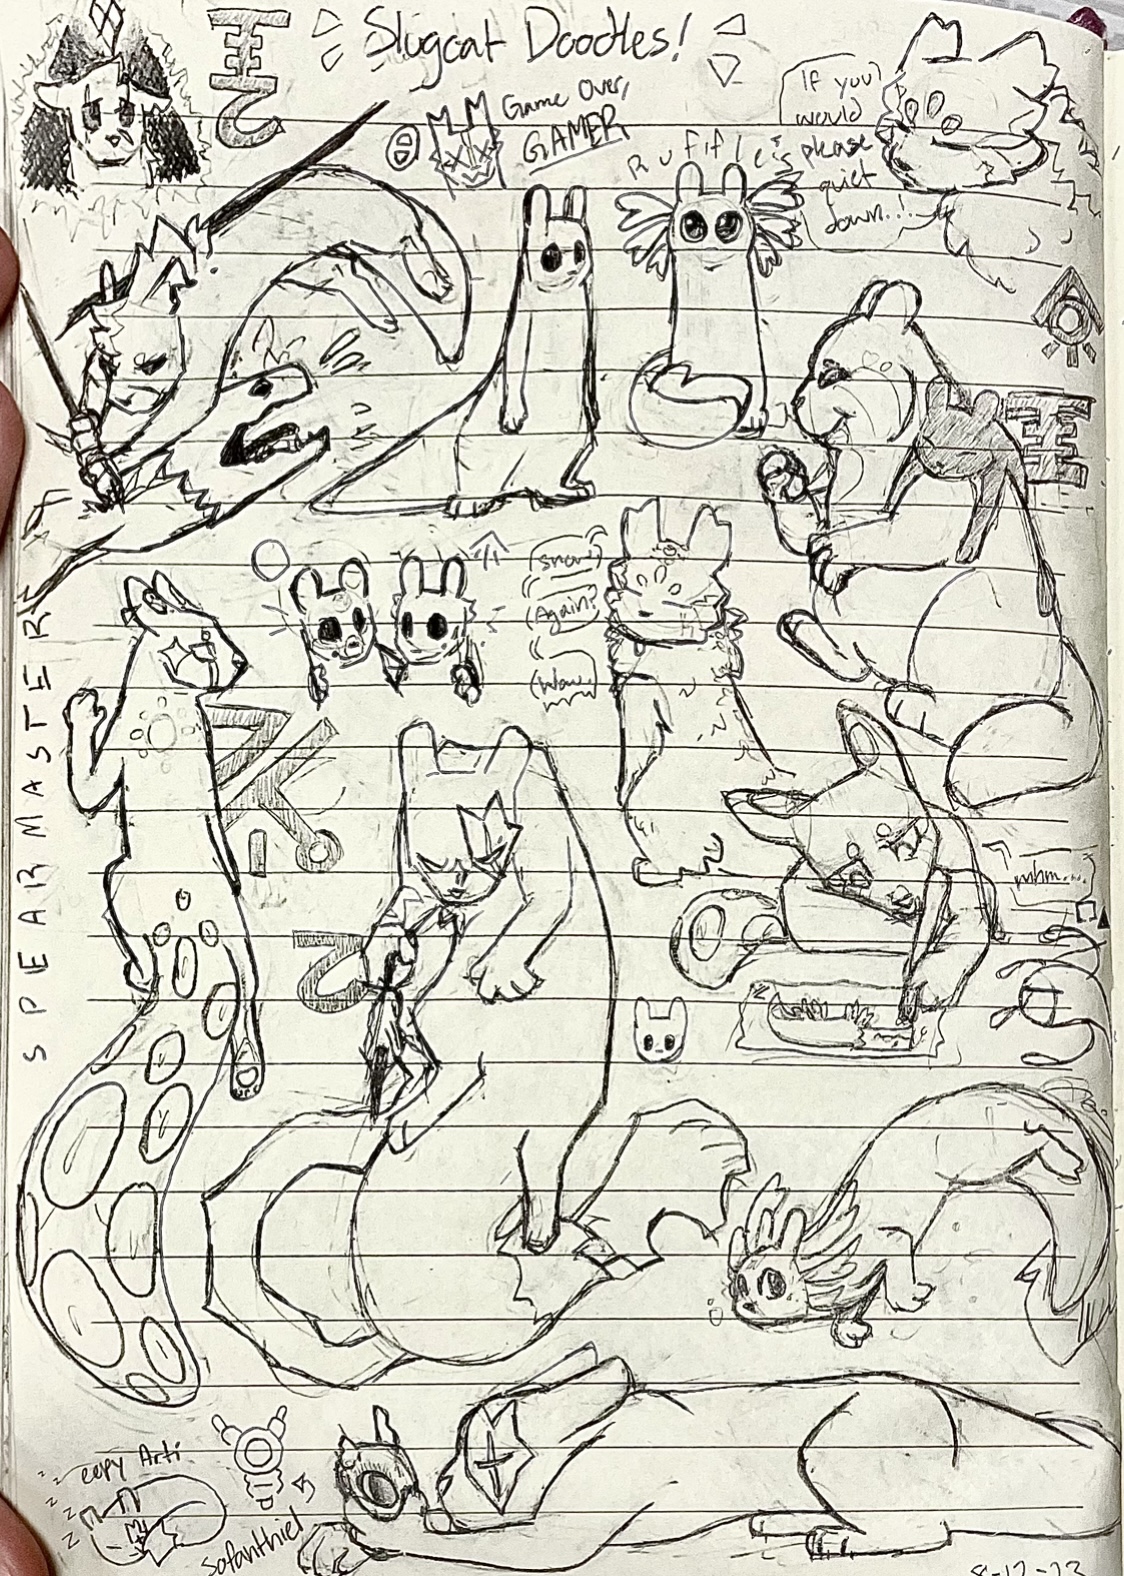 Slugcat Doodles!
Game Over,
GAMER
Rufifles
If you
would
please
quiet
down..!
SPEARMASTER
(snow?)
(Again?
(Wow.
mhm...
eepy Arti
z z z z z
Sofanthiel
8-12-23